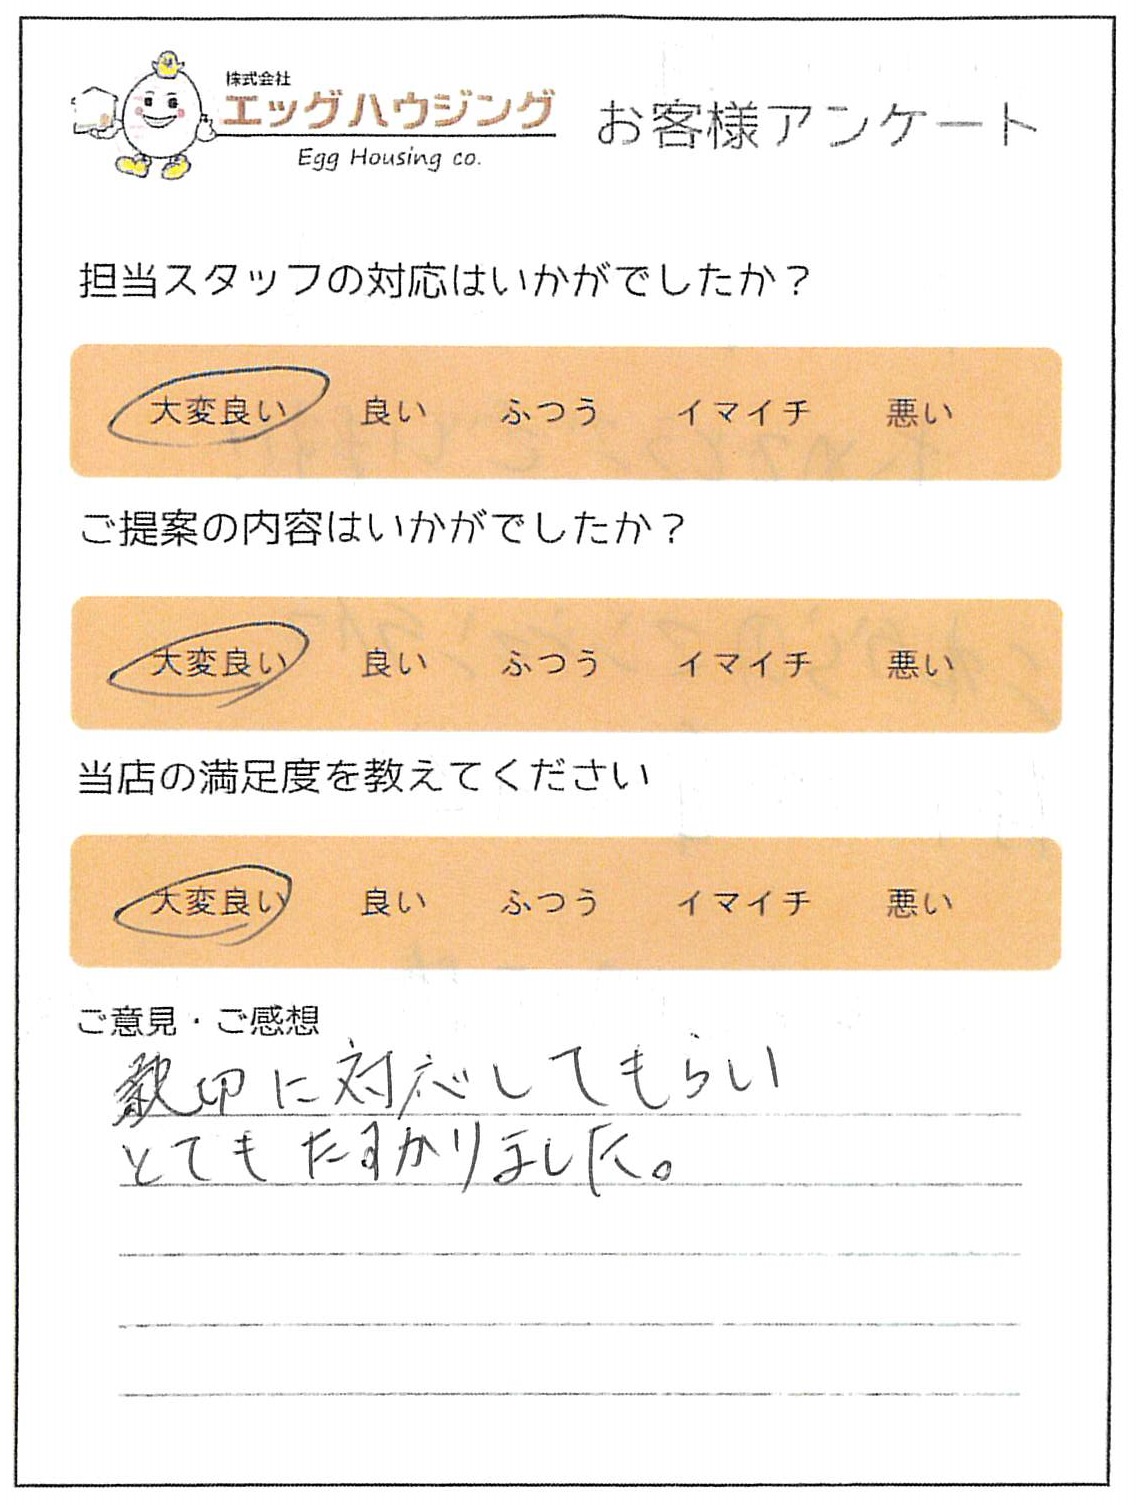 株式会社
エッグハウジング
Egg Housing co.
お客様アンケート
担当スタッフの対応はいかがでしたか？
大変良い 良い ふつう イマイチ 悪い
ご提案の内容はいかがでしたか？
大変良い 良い ふつう イマイチ 悪い
当店の満足度を教えてください
大変良い 良い ふつう イマイチ 悪い
ご意見・ご感想
に対応してもらい
とてもたすかりました。